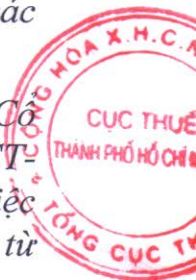 ác
Cổ
TT-
iệc
từ
CỘNG HÒA X.H.C.N
CỤC THUẾ
THÀNH PHỐ HỒ CHÍ
TỔNG CỤC